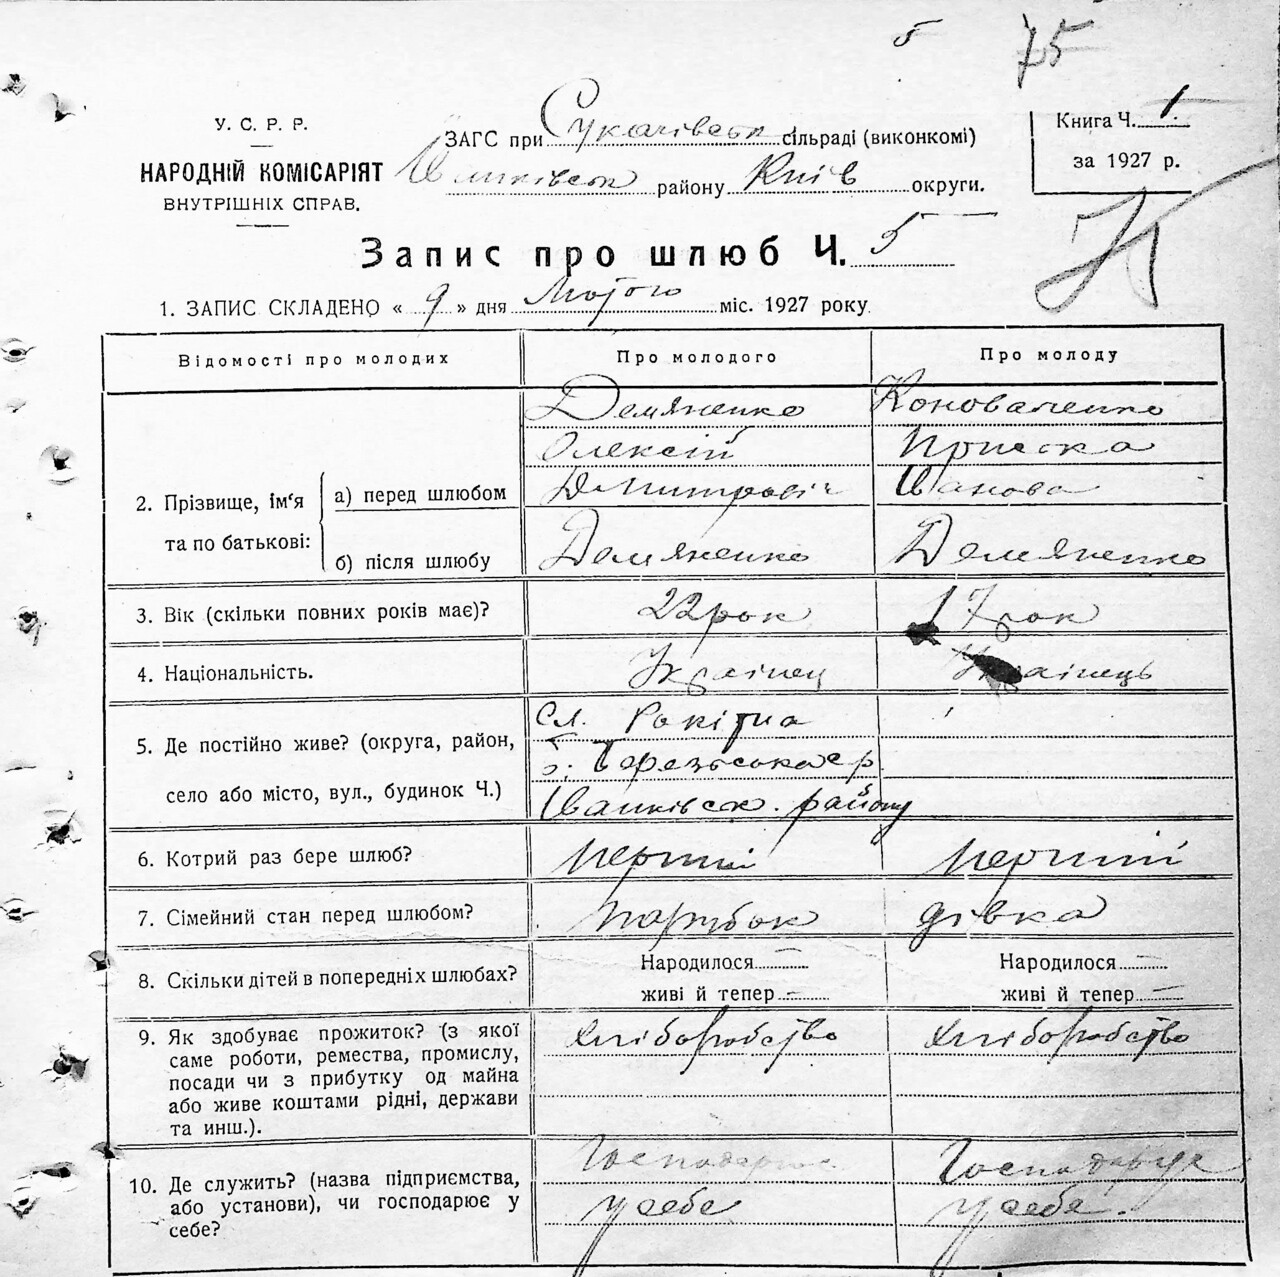 5 75
У. С. Р. Р.
НАРОДНІЙ КОМІСАРІЯТ
ВНУТРІШНІХ СПРАВ.
ЗАГС при Сукачівськ сільраді (виконкомі)
району Київ округи.
Книга Ч. 1
за 1927 р.
Запис про шлюб Ч. 5
1. ЗАПИС СКЛАДЕНО « 9 » дня Лютого міс. 1927 року
Відомості про молодих Про молодого Про молоду
2. Прізвище, ім'я та по батькові:
а) перед шлюбом
Демяненко Коноваленко
Олексій Приська
Дмитрович Іванова
б) після шлюбу Демяненко Демяненко
3. Вік (скільки повних років має)? 22 рок 17 рок
4. Національність. Українец Українець
5. Де постійно живе? (округа, район,
село або місто, вул., будинок Ч.)
сл. Рокітна
Іванківськ. району
6. Котрий раз бере шлюб? перший перший
7. Сімейний стан перед шлюбом? парубок дівка
8. Скільки дітей в попередніх шлюбах? Народилося — Народилося —
живі й тепер — живі й тепер —
9. Як здобуває прожиток? (з якої
саме роботи, ремества, промислу,
посади чи з прибутку од майна
або живе коштами рідні, держави
та инш.).
хліборобство хліборобство
10. Де служить? (назва підприємства,
або установи), чи господарює у
себе?
Господарює Господарує
у себе у себе.